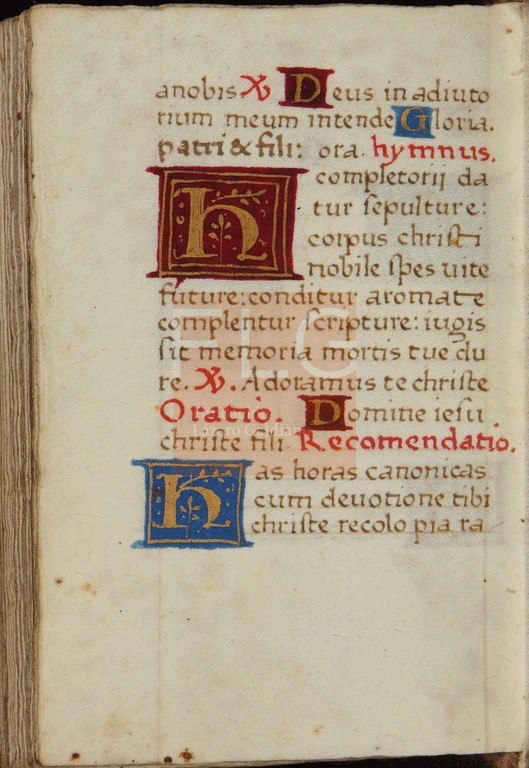 a nobis ℣ Deus in adiuto
rium meum intende Gloria.
patri & fili: ora. hymnus.
H completorij da
tur sepulture:
corpus christi
nobile spes uite
future: conditur aromate
complentur scripture: iugis
sit memoria mortis tue du
re. ℣. Adoramus te christe
Oratio. Domine iesu
christe fili Recomendatio.
Has horas canonicas
cum deuotione tibi
christe recolo pia ra
FLG
Lázaro Galdiano